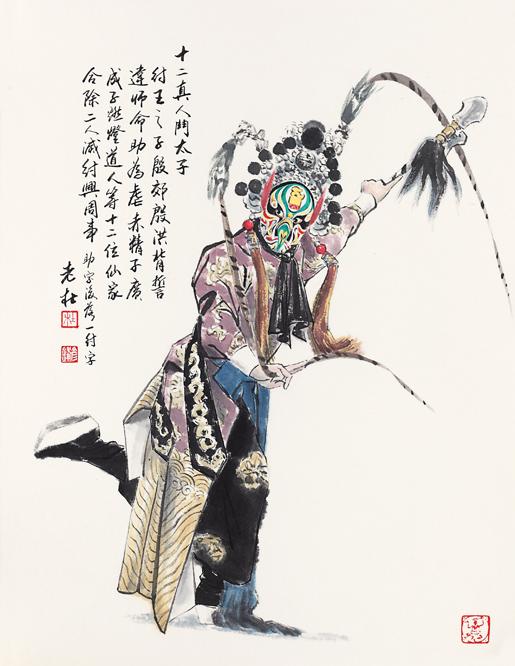 十二真人鬥太子
紂王之子殷郊殷洪背誓
違師命助為虐赤精子廣
成子燃燈道人等十二位仙家
合除二人滅紂興周事 助字後落一紂字
老杜